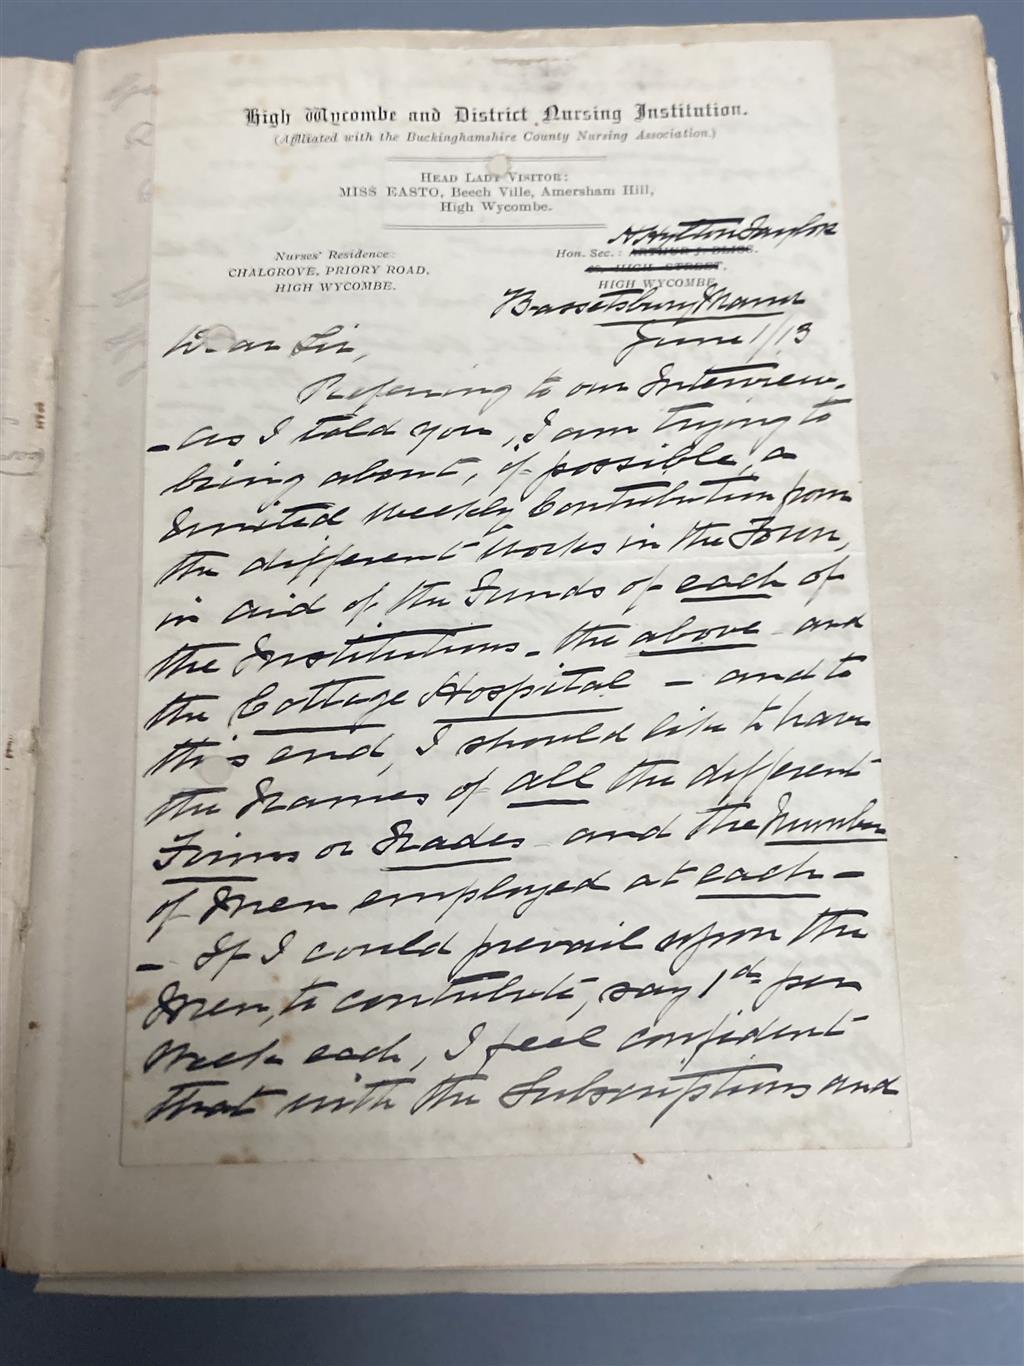 High Wycombe and District Nursing Institution.
(Affiliated with the Buckinghamshire County Nursing Association.)
Head Lady Visitor:
MISS EASTO, Beech Ville, Amersham Hill,
High Wycombe.
Nurses' Residence:
CHALGROVE, PRIORY ROAD,
HIGH WYCOMBE.
Hytton Taylor
Hon. Sec.: ARTHUR J.
HIGH STREET,
HIGH WYCOMBE
Bassetsbury Manor
June 1/13
Dear Sir,
Referring to our Interview,
- as I told you, I am trying to
bring about, if possible, a
United Weekly Contribution from
the different works in the Town,
in aid of the Funds of each of
the Institutions - the above and
the Cottage Hospital - and to
this end, I should like to have
the Names of all the different
Firms or Trades and the Number
of Men employed at each -
- If I could prevail upon the
Men, to contribute, say 1d. per
Week each, I feel confident
that with the Subscriptions and